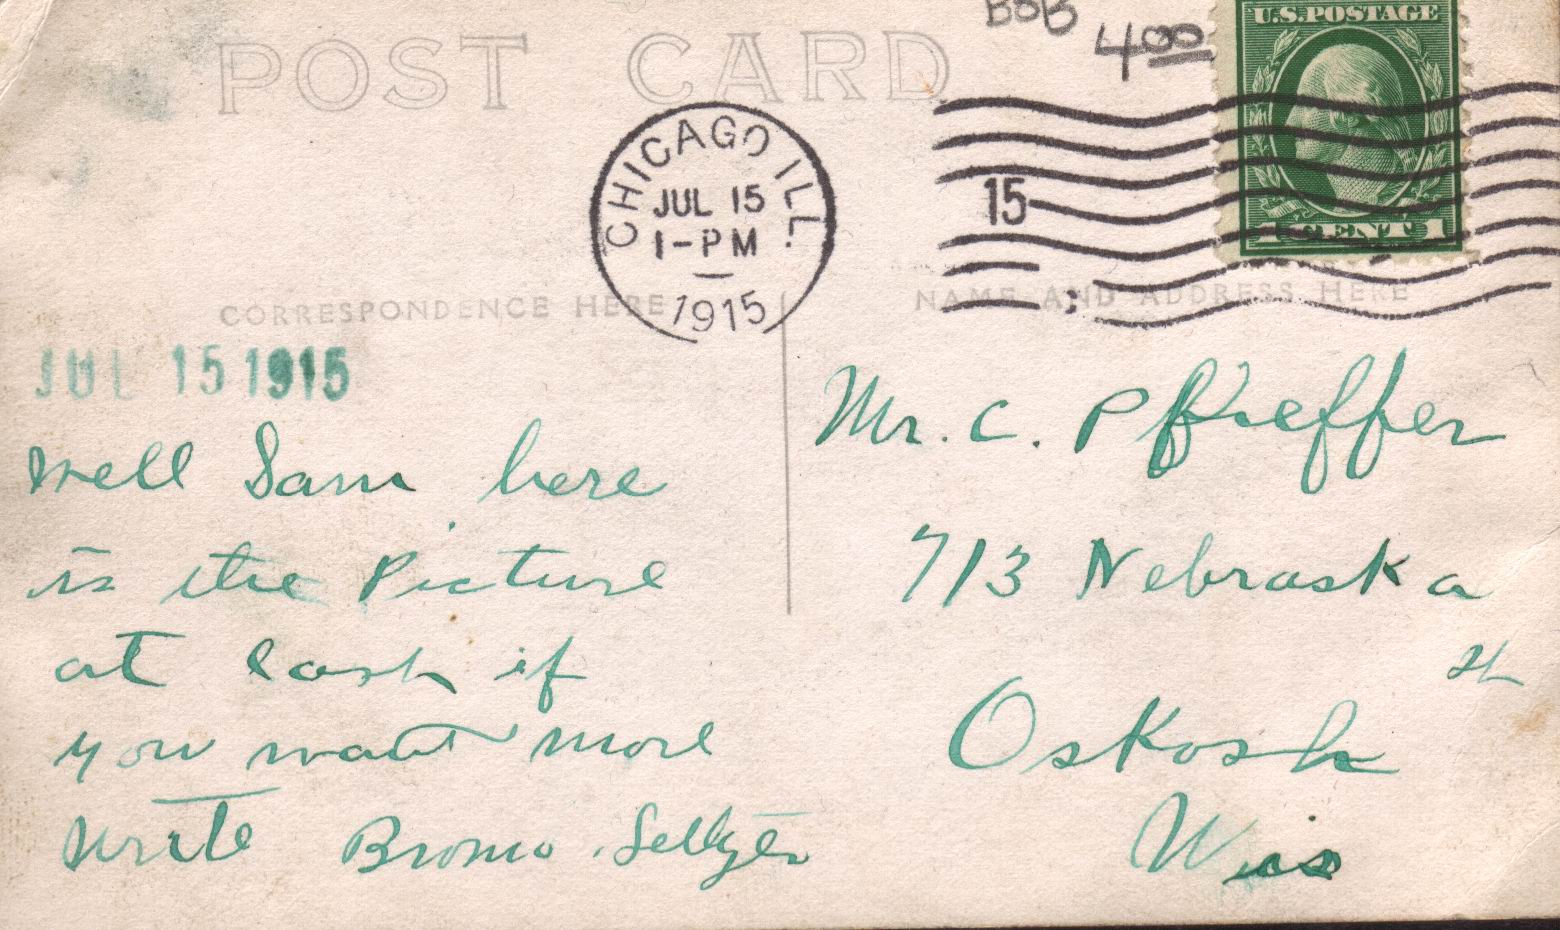 BOB
400
U.S. POSTAGE
1 CENT 1
POST CARD
CHICAGO ILL.
JUL 15
1-PM
1915
15
CORRESPONDENCE HERE
NAME AND ADDRESS HERE
JUL 15 1915
Well Sam here
is the Picture
at last if
you want more
write Bromo Seltzer
Mr. C. Pfieffer
713 Nebraska
St
Oskosh
Wis